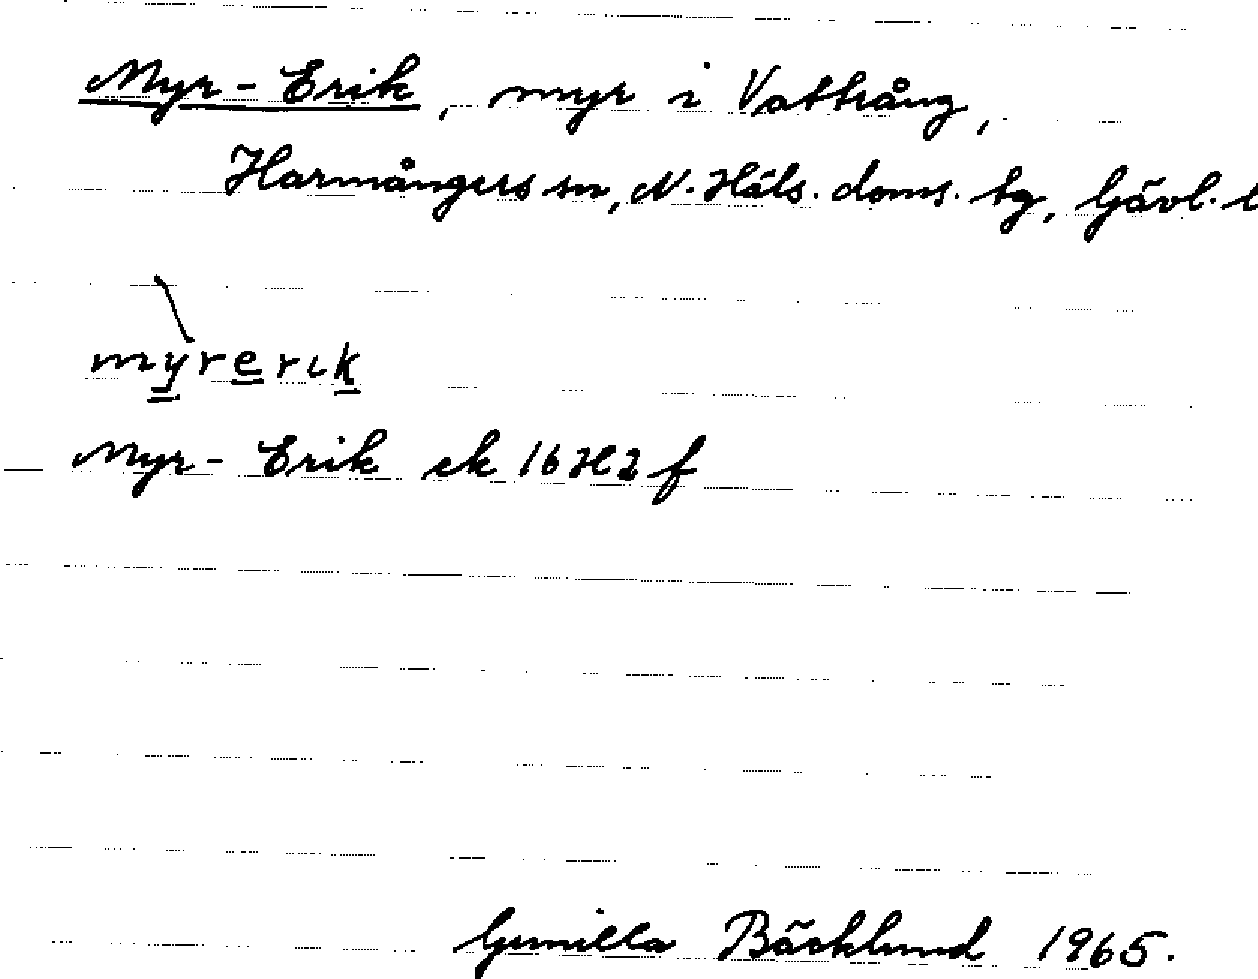 Myr-Erik, myr i Vattrång,
Harmångers sn, N. Häls. doms. tg, Gävl. l
myrerik
Myr-Erik ek 16H2f
Gunilla Bäcklund 1965.